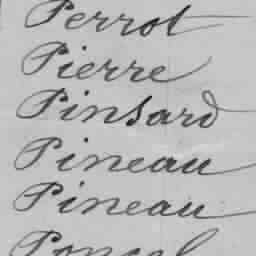 Perrot
Pierre
Pinsard
Pineau
Pineau